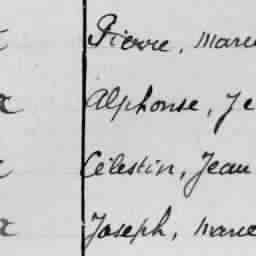 Pierre, Marie
Alphonse, Je
Célestin, Jean
Joseph, Marie